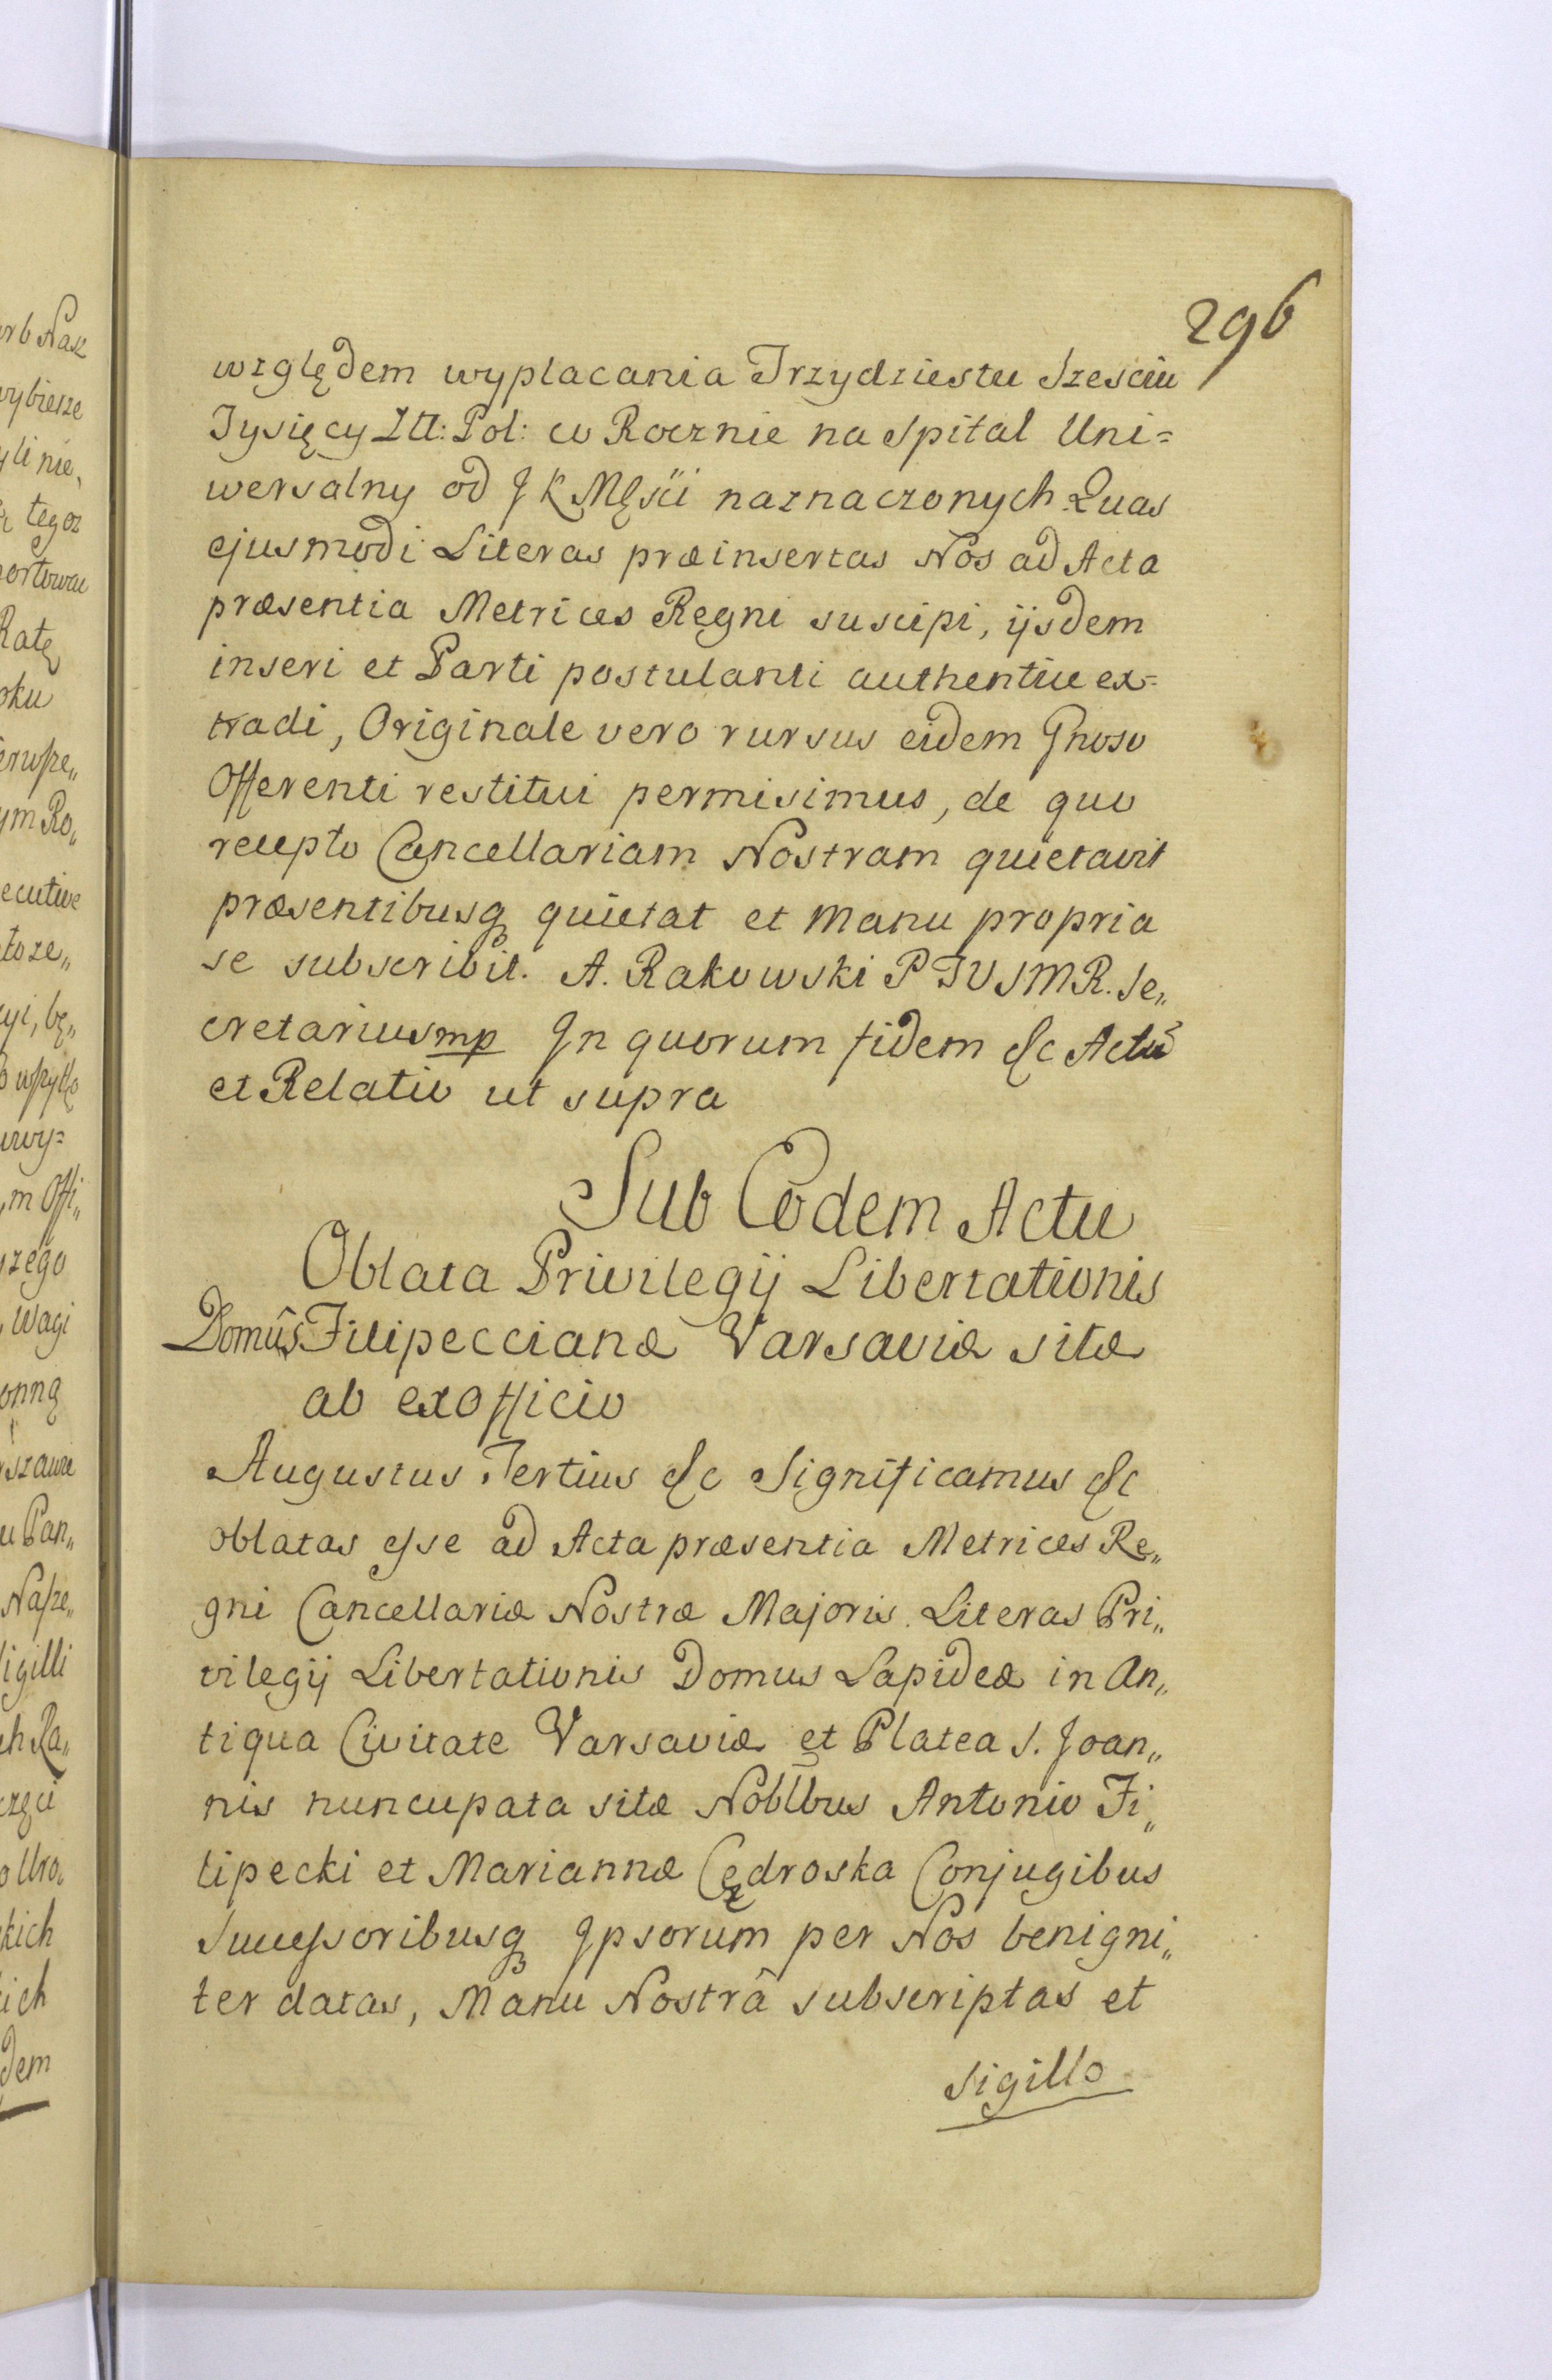 296
względem wypłacania Trzydziestu Szesciu
Tysięcy Złł: Pol: co Rocznie na Spital Uni=
wersalny od J K Mḡscii naznaczonych Quas
ejusmodi Literas præinsertas Nos ad Acta
præsentia Metrices Regni suscipi, ijsdem
inseri et Parti postulanti authentice ex=
tradi, Originale vero rursus eidem Gnoso
Offerenti restitui permisimus, de quo
recepto Cancellariam Nostram quietavit
præsentibusq quietat et Manu propria
se subscribit. A. Rakowski P J U S M R. Se„
cretarius mp In quorum fidem &c Actũ
et Relatio ut supra
Sub Eodem Actu
Oblata Privilegij Libertationis
Domûs Filipeccianæ Varsaviæ sitæ
ab exofficio
Augustus Tertius &c Significamus &c
oblatas esse ad Acta præsentia Metrices Re„
gni Cancellariæ Nostræ Majoris Literas Pri„
vilegij Libertationis Domus Lapideæ in An„
tiqua Civitate Varsaviæ et Platea S. Joan„
nis nuncupata sitæ Nobllbus Antonio Fi„
lipecki et Mariannæ Cędroska Conjugibus
Successoribusq Ipsorum per Nos benigni„
ter datas, Manu Nostrâ subscriptas et
Sigillo